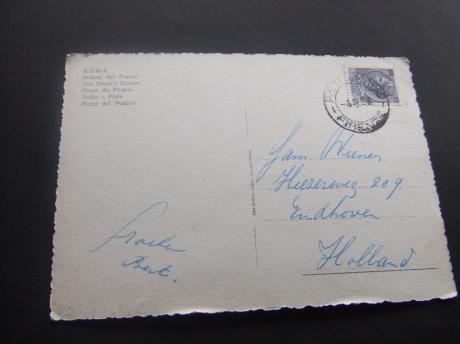 ROMA
Piazza del Popolo
The Peopl's Square
Place du Peuple
Volks - Platz
Plaza del Pueblo
FIRENZE
Fam. Wiener
Heezerweg 209.
Eindhoven
Holland.
Bert.